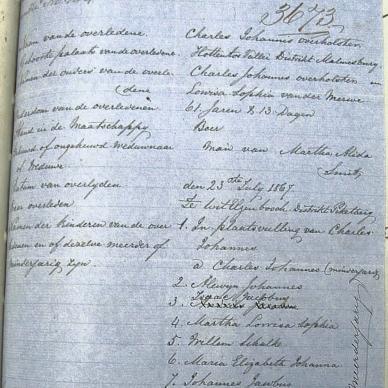 3673.
van de overledene. Charles Johannes overholster
geboorte plaats van de overledene. Hottentos Vallei Distrikt Malmesbury.
der ouders van de overle- Charles Johannes overholster en
(dene Louisa Sophia van der Merwe
ouderdom van de overledenen 61. Jaren & 13 Dagen
Stand in de Maatschappy Boer
of ongehuwd Weduwnaar Man van Martha Alida
of Weduwe. Smit
Datum van overlyden den 23ste July 1867.
overleden Te Distrikt Piketberg
Namen der kinderen van de over 1. In plaatsvulling van Charles
en of dezelve meerder of Johannes
minderjarig zyn. a Charles Johannes (minderjarig
2. Alewyn Johannes
3. Isaac Jacobus
4. Martha Louisa Sophia
5. Willem Schalk
6. Maria Elizabeth Johanna
7. Johannes Jacobus
meerderjarig